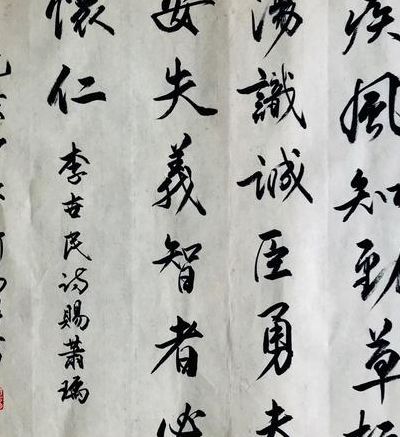 疾風知勁草板
蕩識誠臣勇夫
安失義智者必
懷仁 李世民詩賜蕭瑀